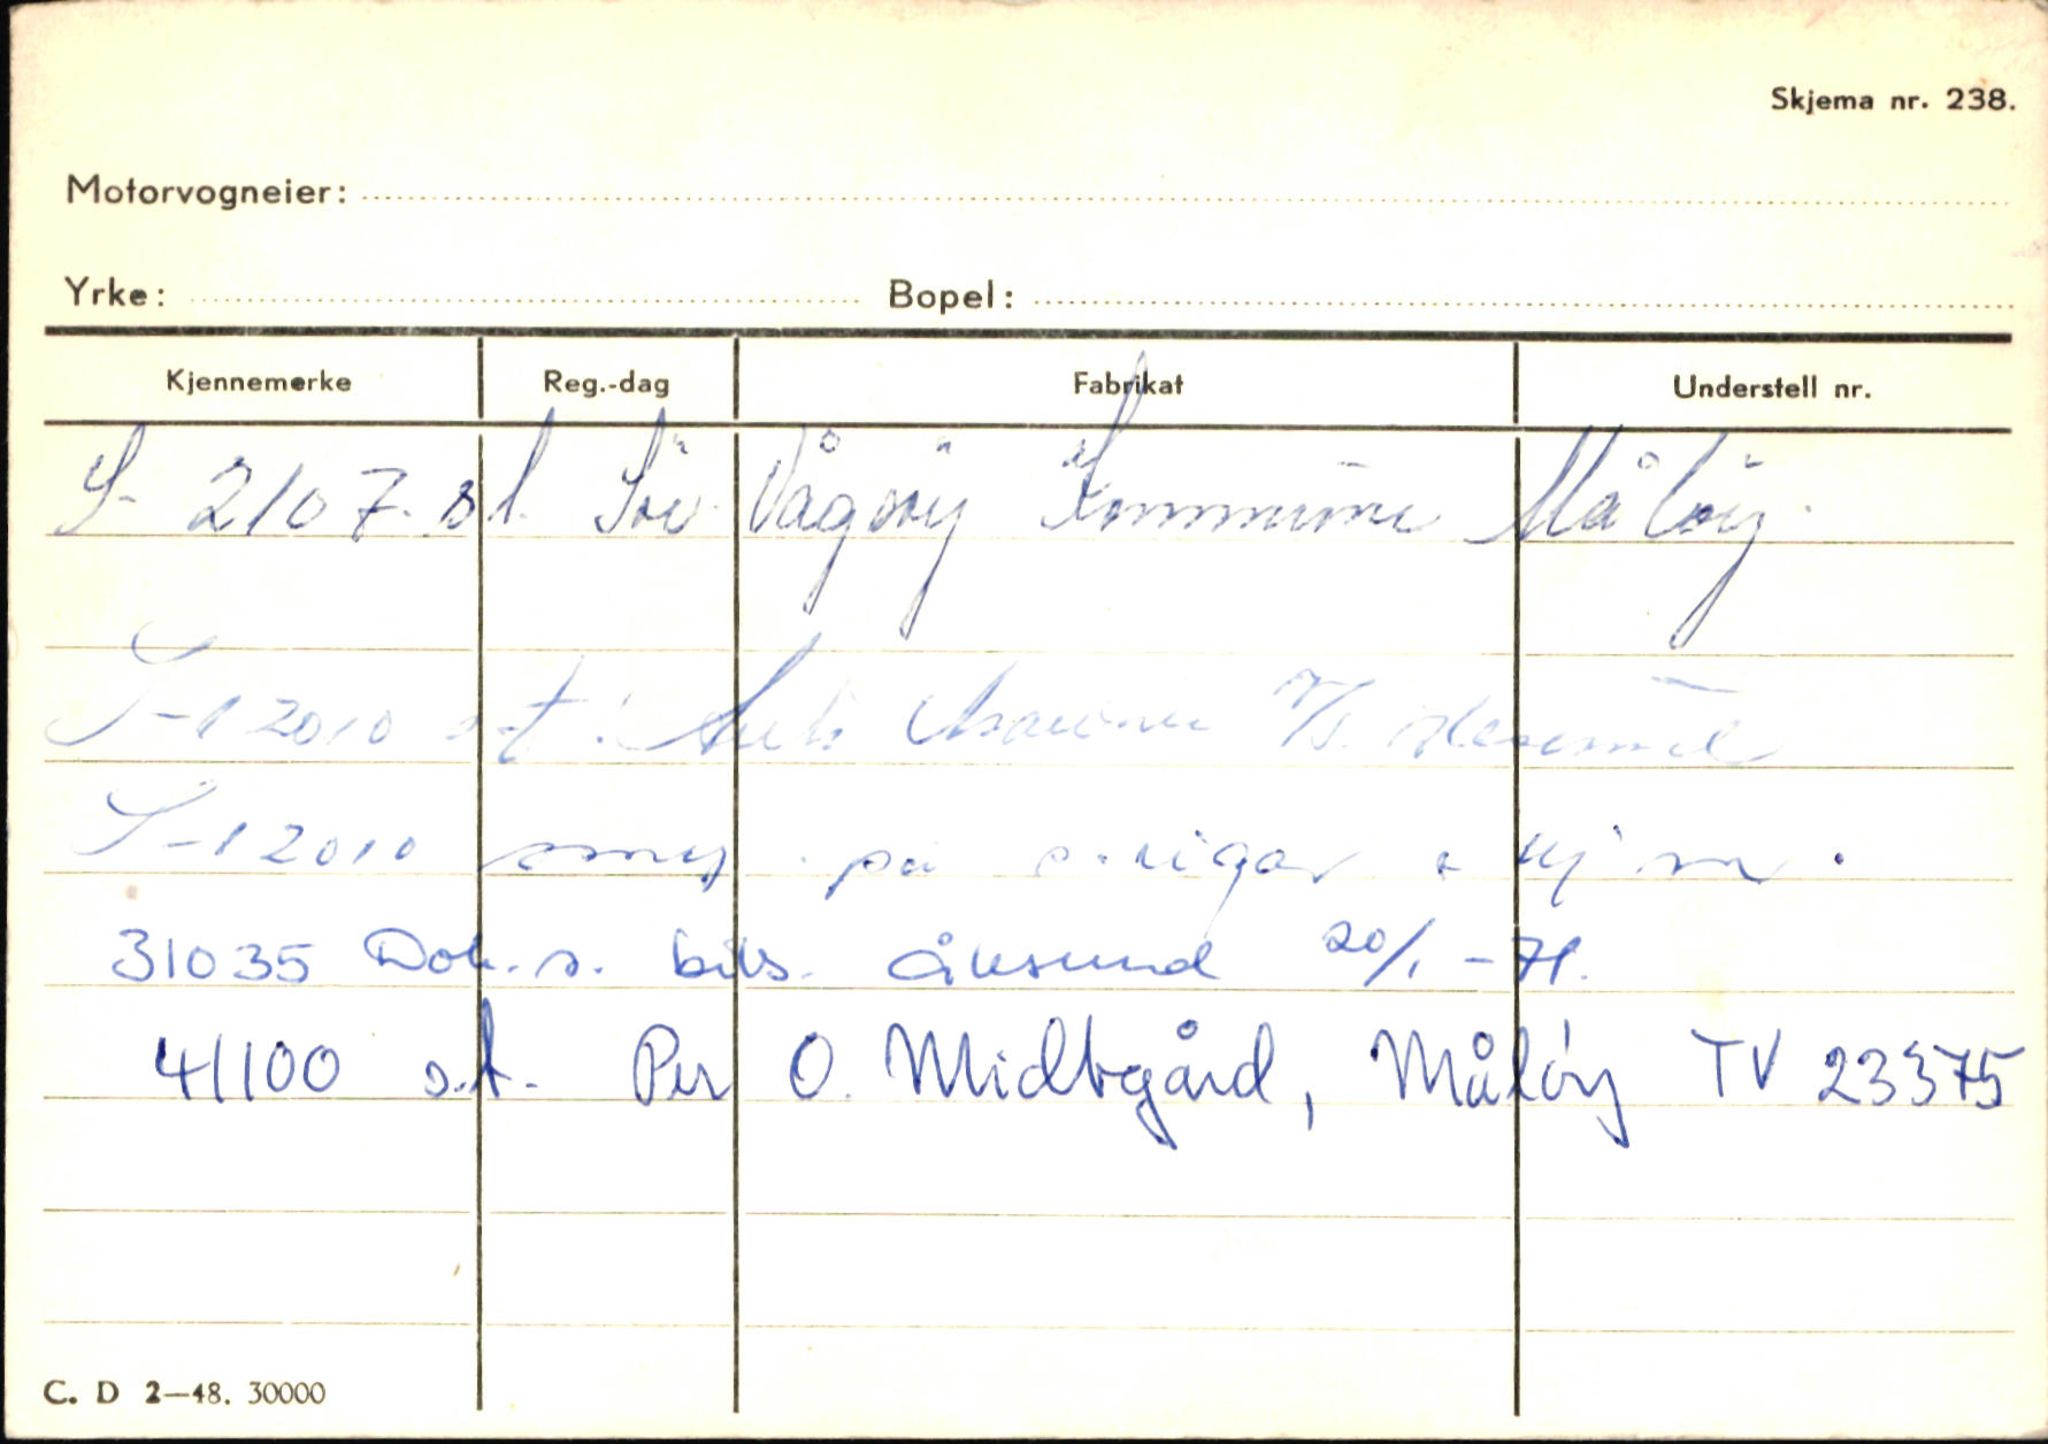 Skjema nr. 238.
Motorvogneier:
Yrke: Bopel:
Kjennemerke Reg.-dag Fabrikat Understell nr.
S- 2107. s.t. Sör Vågsöy Kommune Måløy.
S-12010 s.t. Auto A/S.
S-12010 på kj.m.
31035 Dok. s. bils. Ålesund 20/1-71.
41100 s.t. Per O. Midtgård, Måløy TV 23375
C. D 2-48. 30000